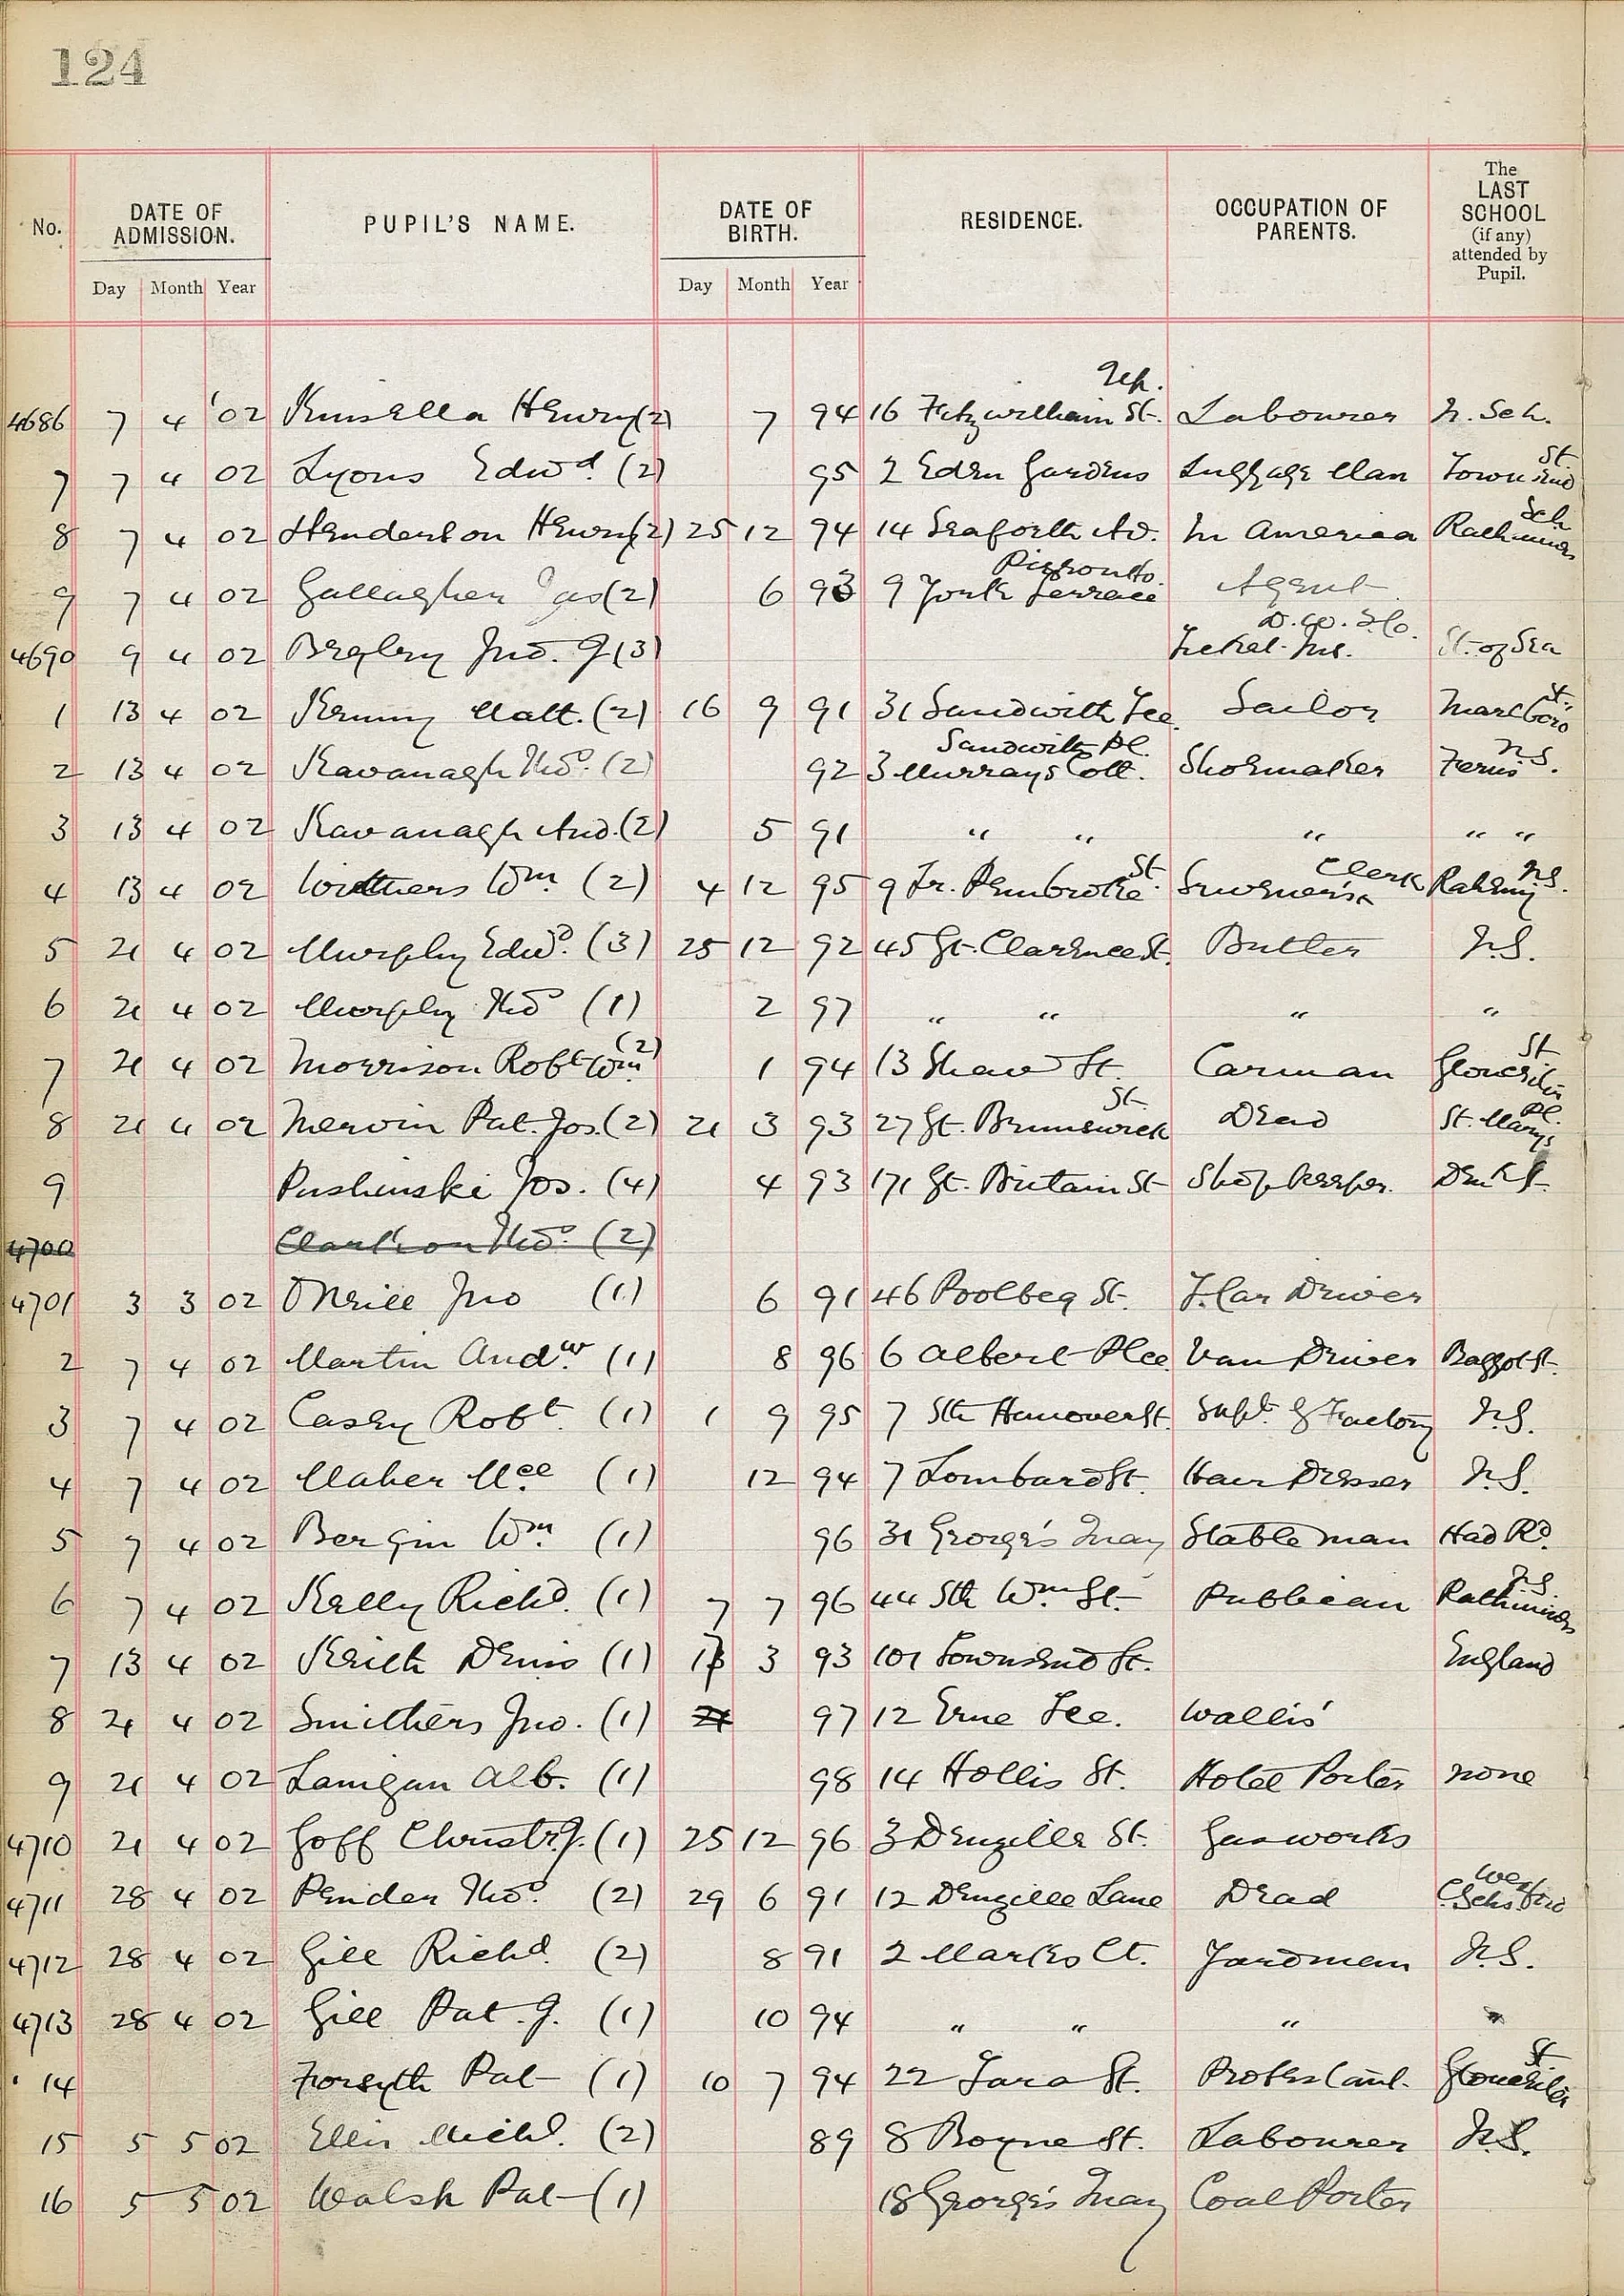 124
No. DATE OF ADMISSION. PUPIL'S NAME. DATE OF BIRTH. RESIDENCE. OCCUPATION OF PARENTS. The LAST SCHOOL (if any) attended by Pupil.
Day Month Year Day Month Year
4686 7 4 '02 Kinsella Henry (2) 7 94 16 Up. Fitzwilliam St. Labourer N. Sch.
7 7 4 02 Lyons Edwd. (2) 95 2 Eden Gardens Luggage Man Townsend St.
8 7 4 02 Henderson Henry (2) 25 12 94 14 Seaforth Av. In America Rathmines Sch
9 7 4 02 Gallagher Jas (2) 6 93 9 York Terrace Pigeon Ho. Agent
4690 9 4 02 Begley Jno. J (3) D.W. & Co. Ticket Ins. St. of Sea
1 13 4 02 Kenny Matt. (2) 16 9 91 31 Sandwith Tce. Sailor Marlboro St.
2 13 4 02 Kavanagh Thos. (2) 92 3 Murrays Cott. Sandwith Pl. Shoemaker Ferns N.S.
3 13 4 02 Kavanagh And. (2) 5 91 " " " " "
4 13 4 02 Withers Wm. (2) 4 12 95 9 Lr. Pembroke St. Clerk Raheny N.S.
5 21 4 02 Murphy Edwd. (3) 25 12 92 45 Gt. Clarence St. Butler N.S.
6 21 4 02 Murphy Thos (1) 2 97 " " " "
7 21 4 02 Morrison Robt Wm (2) 1 94 13 Shaw St. Carman Gloucester St
8 21 4 02 Mervin Pat. Jos. (2) 21 3 93 27 Gt. Brunswick St. Dead St. Marys Pl.
9 Pushinski Jos. (4) 4 93 171 Gt. Britain St Shopkeeper. Den. St.
4700 Clarkson Thos. (2)
4701 3 3 02 O'Neill Jno (1) 6 91 46 Poolbeg St. T. Car Driver
2 7 4 02 Martin Andw. (1) 8 96 6 Albert Plce. Van Driver Baggot St.
3 7 4 02 Casey Robt. (1) 1 9 95 7 Sth Hanover St. Supt. of Factory N.S.
4 7 4 02 Maher Mce (1) 12 94 7 Lombard St. Hair Dresser N.S.
5 7 4 02 Bergin Wm (1) 96 31 George's Quay Stable man Had Rd.
6 7 4 02 Kelly Richd. (1) 7 7 96 44 Sth Wm St. Publican Rathmines N.S.
7 13 4 02 Keith Denis (1) 3 93 101 Townsend St. England
8 21 4 02 Smithers Jno. (1) 21 97 12 Erne Tce. Wallis'
9 21 4 02 Lanigan Alb. (1) 98 14 Hollis St. Hotel Porter none
4710 21 4 02 Goff Christr. J. (1) 25 12 96 3 Denzille St. Gasworks
4711 28 4 02 Pender Thos. (2) 29 6 91 12 Denzille Lane Dead C. Schs Wexford
4712 28 4 02 Gill Richd. (2) 8 91 2 Marks Ct. Yardman N.S.
4713 28 4 02 Gill Pat. J. (1) 10 94 " " " "
14 Forsyth Pat (1) 10 7 94 22 Tara St. Protestant. Gloucester St
15 5 5 02 Ellis Michl. (2) 89 8 Boyne St. Labourer N.S.
16 5 5 02 Walsh Pat (1) 18 George's Quay Coal Porter